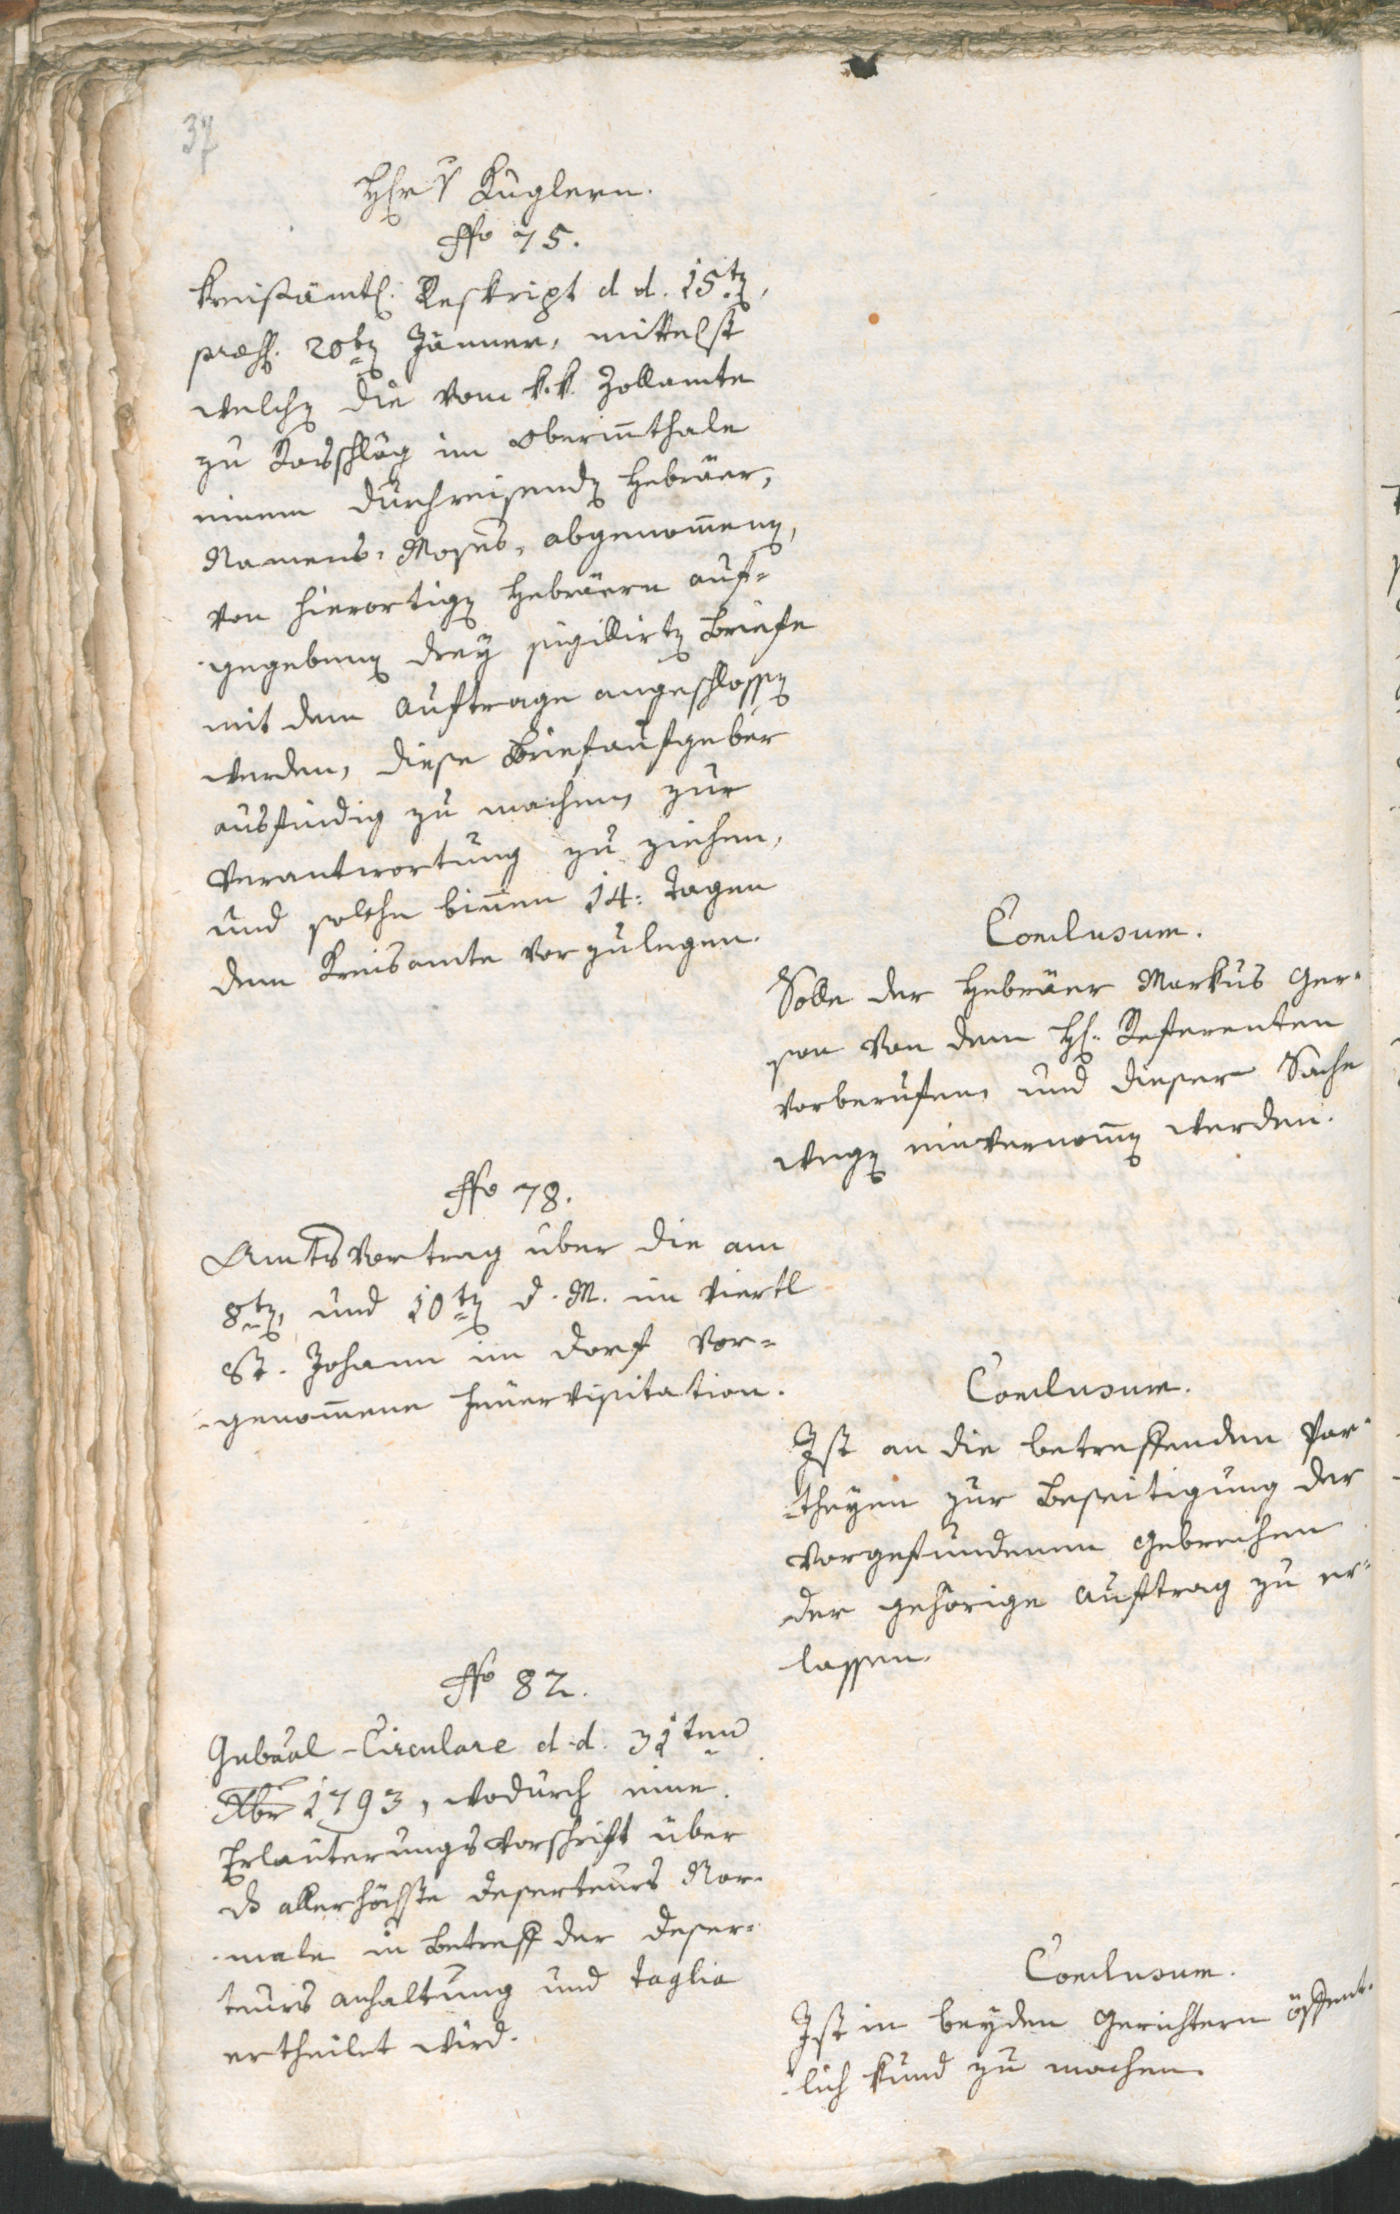 37
H̄r v Kuglern.
No 75.
kreisämtl. Reskript d d. 15ten,
præs. 20ten Jänner, mittelst
welchen die vom k. k. Zollamte
zu im Oberinnthale
einem durchreisenden Hebräer,
Namens Moses, abgenom̄enen,
von hierortigen Hebräern auf-
gegebenen drey sigillirten Briefe
mit dem Auftrage angeschlossen
werden, diese Briefaufgeber
ausfindig zu machen, zur
Verantwortung zu ziehen,
und solche bin̄en 14: Tagen
dem Kreisamte vorzulegen.
Conclusum.
Solle der Hebräer Markus Ger-
son von dem H. Referenten
vorberufen, und dieser Sache
wegen einvernom̄en werden.
No 78.
Amtsvortrag über die am
8ten, und 10ten d. M. im Viertl
St. Johann im Dorf vor-
genom̄ene Feuervisitation.
Conclusum.
Ist an die betreffenden Par-
theyen zur Beseitigung der
vorgefundenen Gebrechen
der gehörige Auftrag zu er-
lassen.
No 82.
Gubnal-Circulare d. d. 31ten
Xbr 1793, wodurch eine
Erläuterungsvorschrift über
ds allerhöchste Deserteurs Nor-
male in Betreff der Deser-
teurs anhaltung und Taglia
ertheilet wird.
Conclusum.
Ist in beyden Gerichtern öffent-
lich kund zu machen.